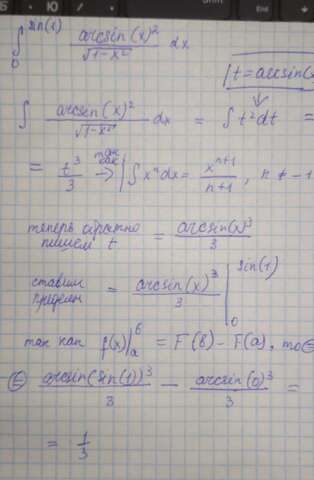 ∫₀^sin(1) arcsin(x)²/√(1-x²) dx
| t = arcsin(x
∫ arcsin(x)²/√(1-x²) dx = ∫ t² dt =
= t³/3 → так как | ∫ xⁿ dx = xⁿ⁺¹/n+1, n ≠ -1
теперь обратно пишем t = arcsin(x)³/3
ставим пределы = arcsin(x)³/3 |₀^sin(1)
так как f(x)|ₐᵇ = F(b) - F(a), то ⊜
⊜ arcsin(sin(1))³/3 - arcsin(0)³/3 =
= 1/3